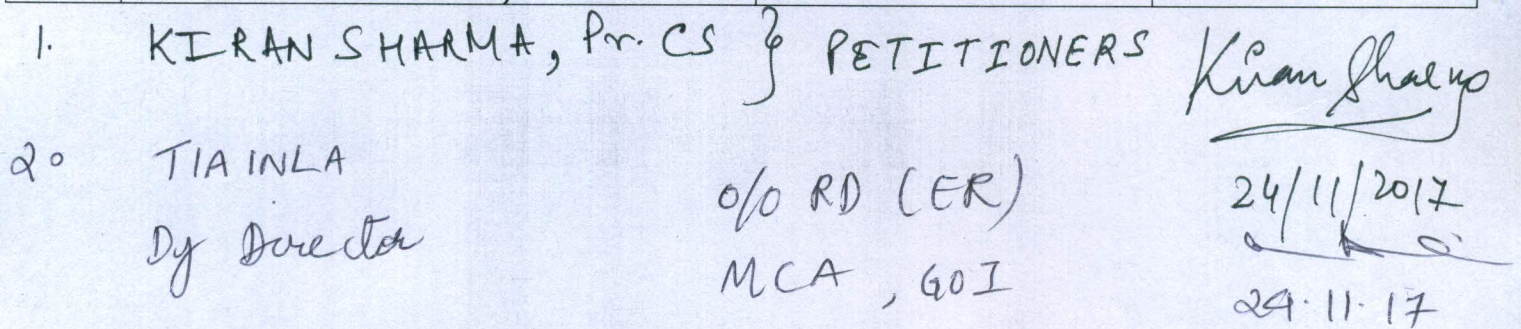 1. KIRAN SHARMA, Pr. CS } PETITIONERS Kiran Sharma
24/11/2017
2. TIAINLA o/o RD (ER)
Dy Director MCA, GOI
24.11.17